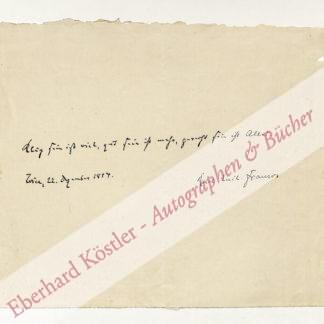 Klug sein ist viel, gut sein ist mehr, gerecht sein ist Alles.
Wien, 22. Dezember 1884.
Karl Emil Franzos
Eberhard Köstler - Autographen & Bücher